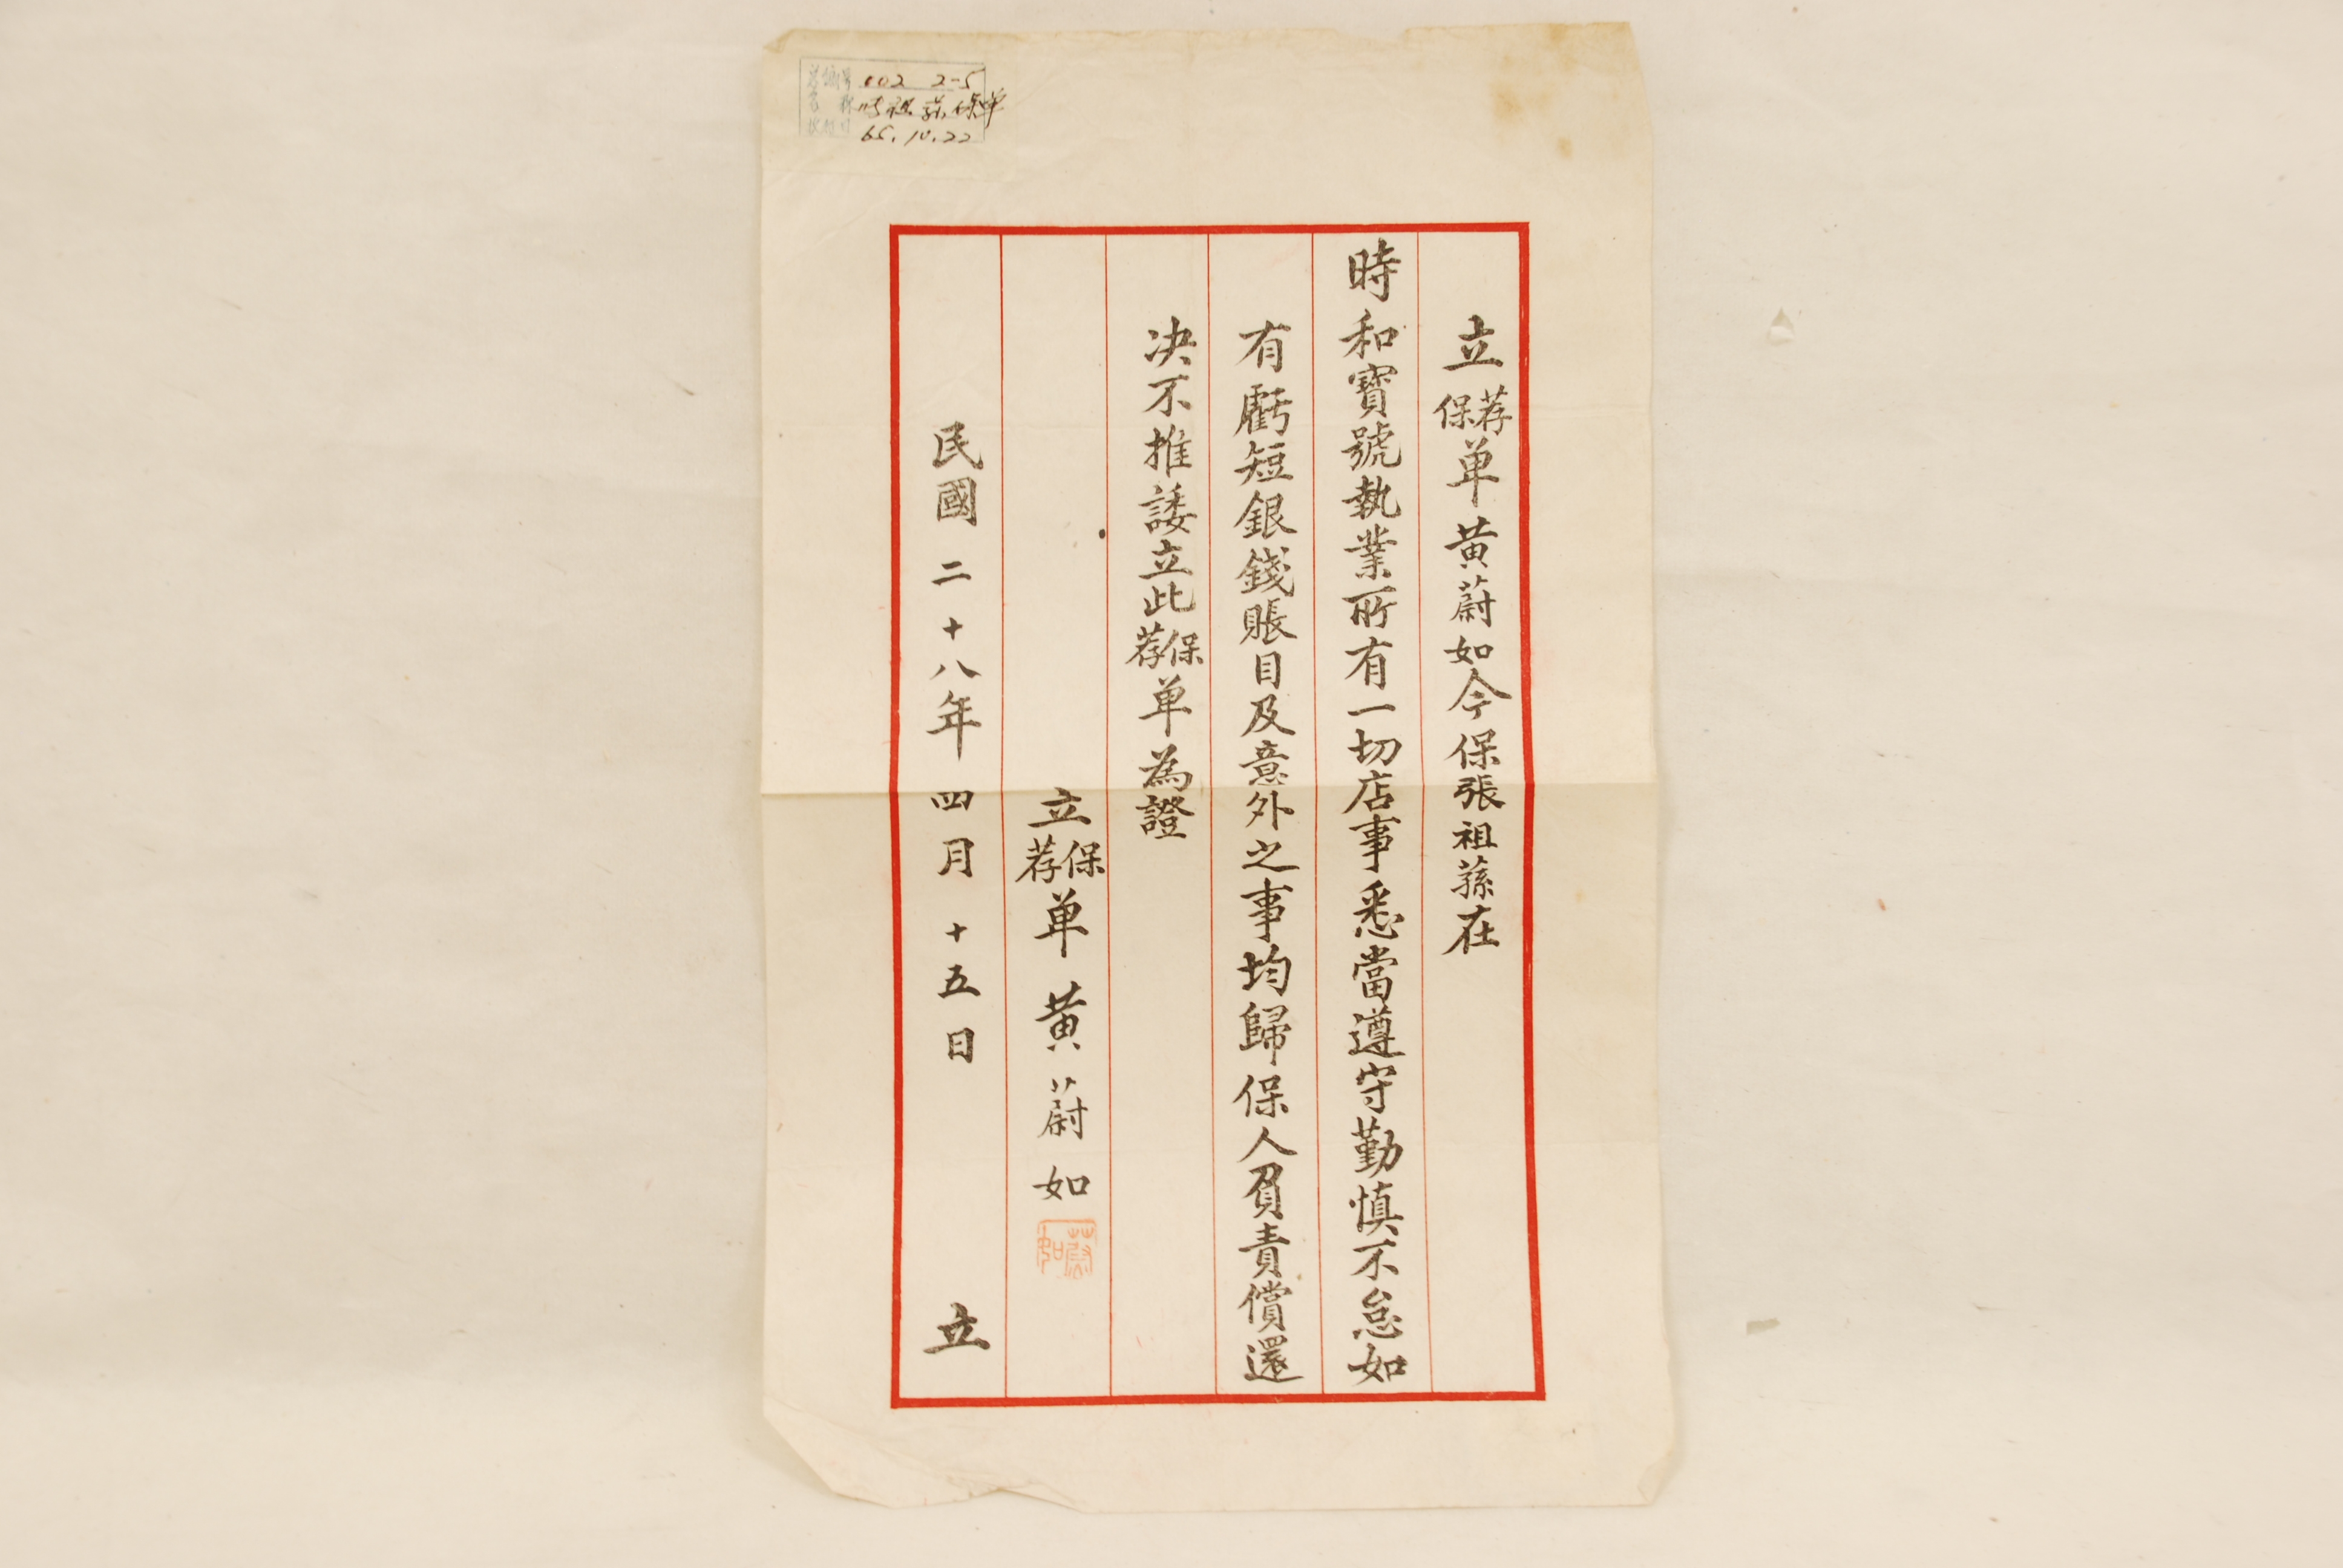 立荐保单黄蔚如今保張祖蓀在
時和寶號執業所有一切店事悉當遵守勤慎不怠如
有虧短銀錢賬目及意外之事均歸保人負責償還
决不推諉立此保荐单為證
立保荐单 黄蔚如
蔚如
民國二十八年四月十五日 立
編号 102 2-5
祖蓀保单
65.10.22